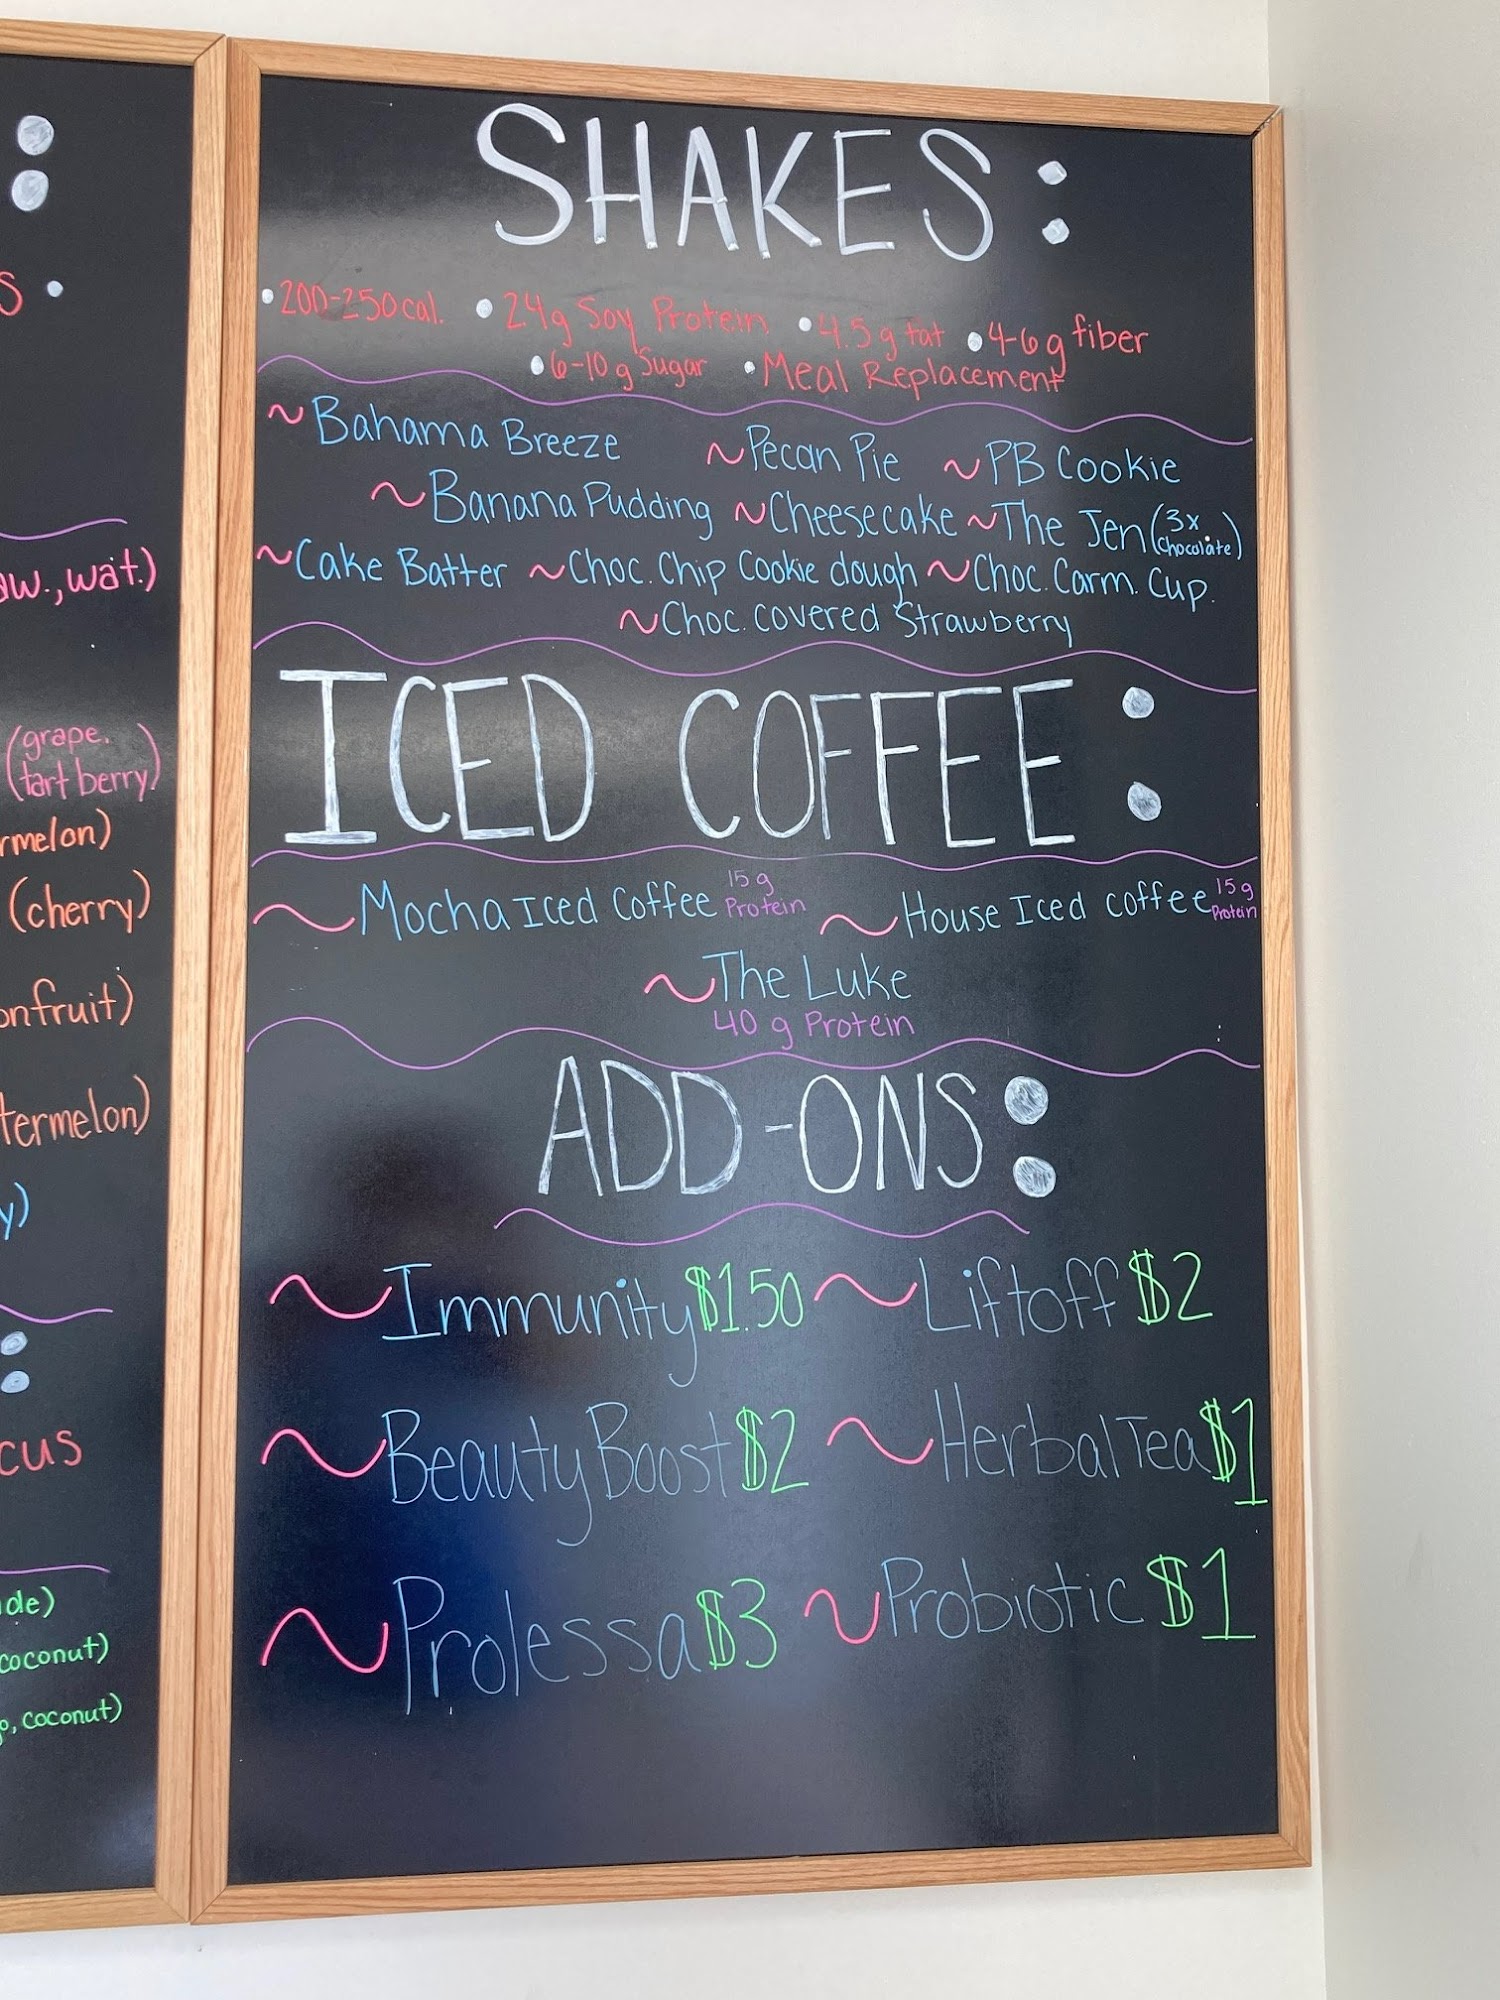 SHAKES:
•200-250cal. •24g Soy Protein •4.5g fat •4-6g fiber
•6-10g Sugar •Meal Replacement
~Bahama Breeze ~Pecan Pie ~PB Cookie
~Banana Pudding ~Cheesecake ~The Jen (3x Chocolate)
~Cake Batter ~Choc. Chip Cookie dough ~Choc. Carm. Cup.
~Choc. covered Strawberry
ICED COFFEE:
~Mocha Iced Coffee 15g Protein ~House Iced coffee 15g Protein
~The Luke
40 g Protein
ADD-ONS:
~Immunity $1.50 ~Liftoff $2
~Beauty Boost $2 ~Herbal Tea $1
~Prolessa $3 ~Probiotic $1
:
S •
aw., wat.)
(grape.
tart berry)
rmelon)
(cherry)
onfruit)
termelon)
y)
:
cus
de)
coconut)
o, coconut)